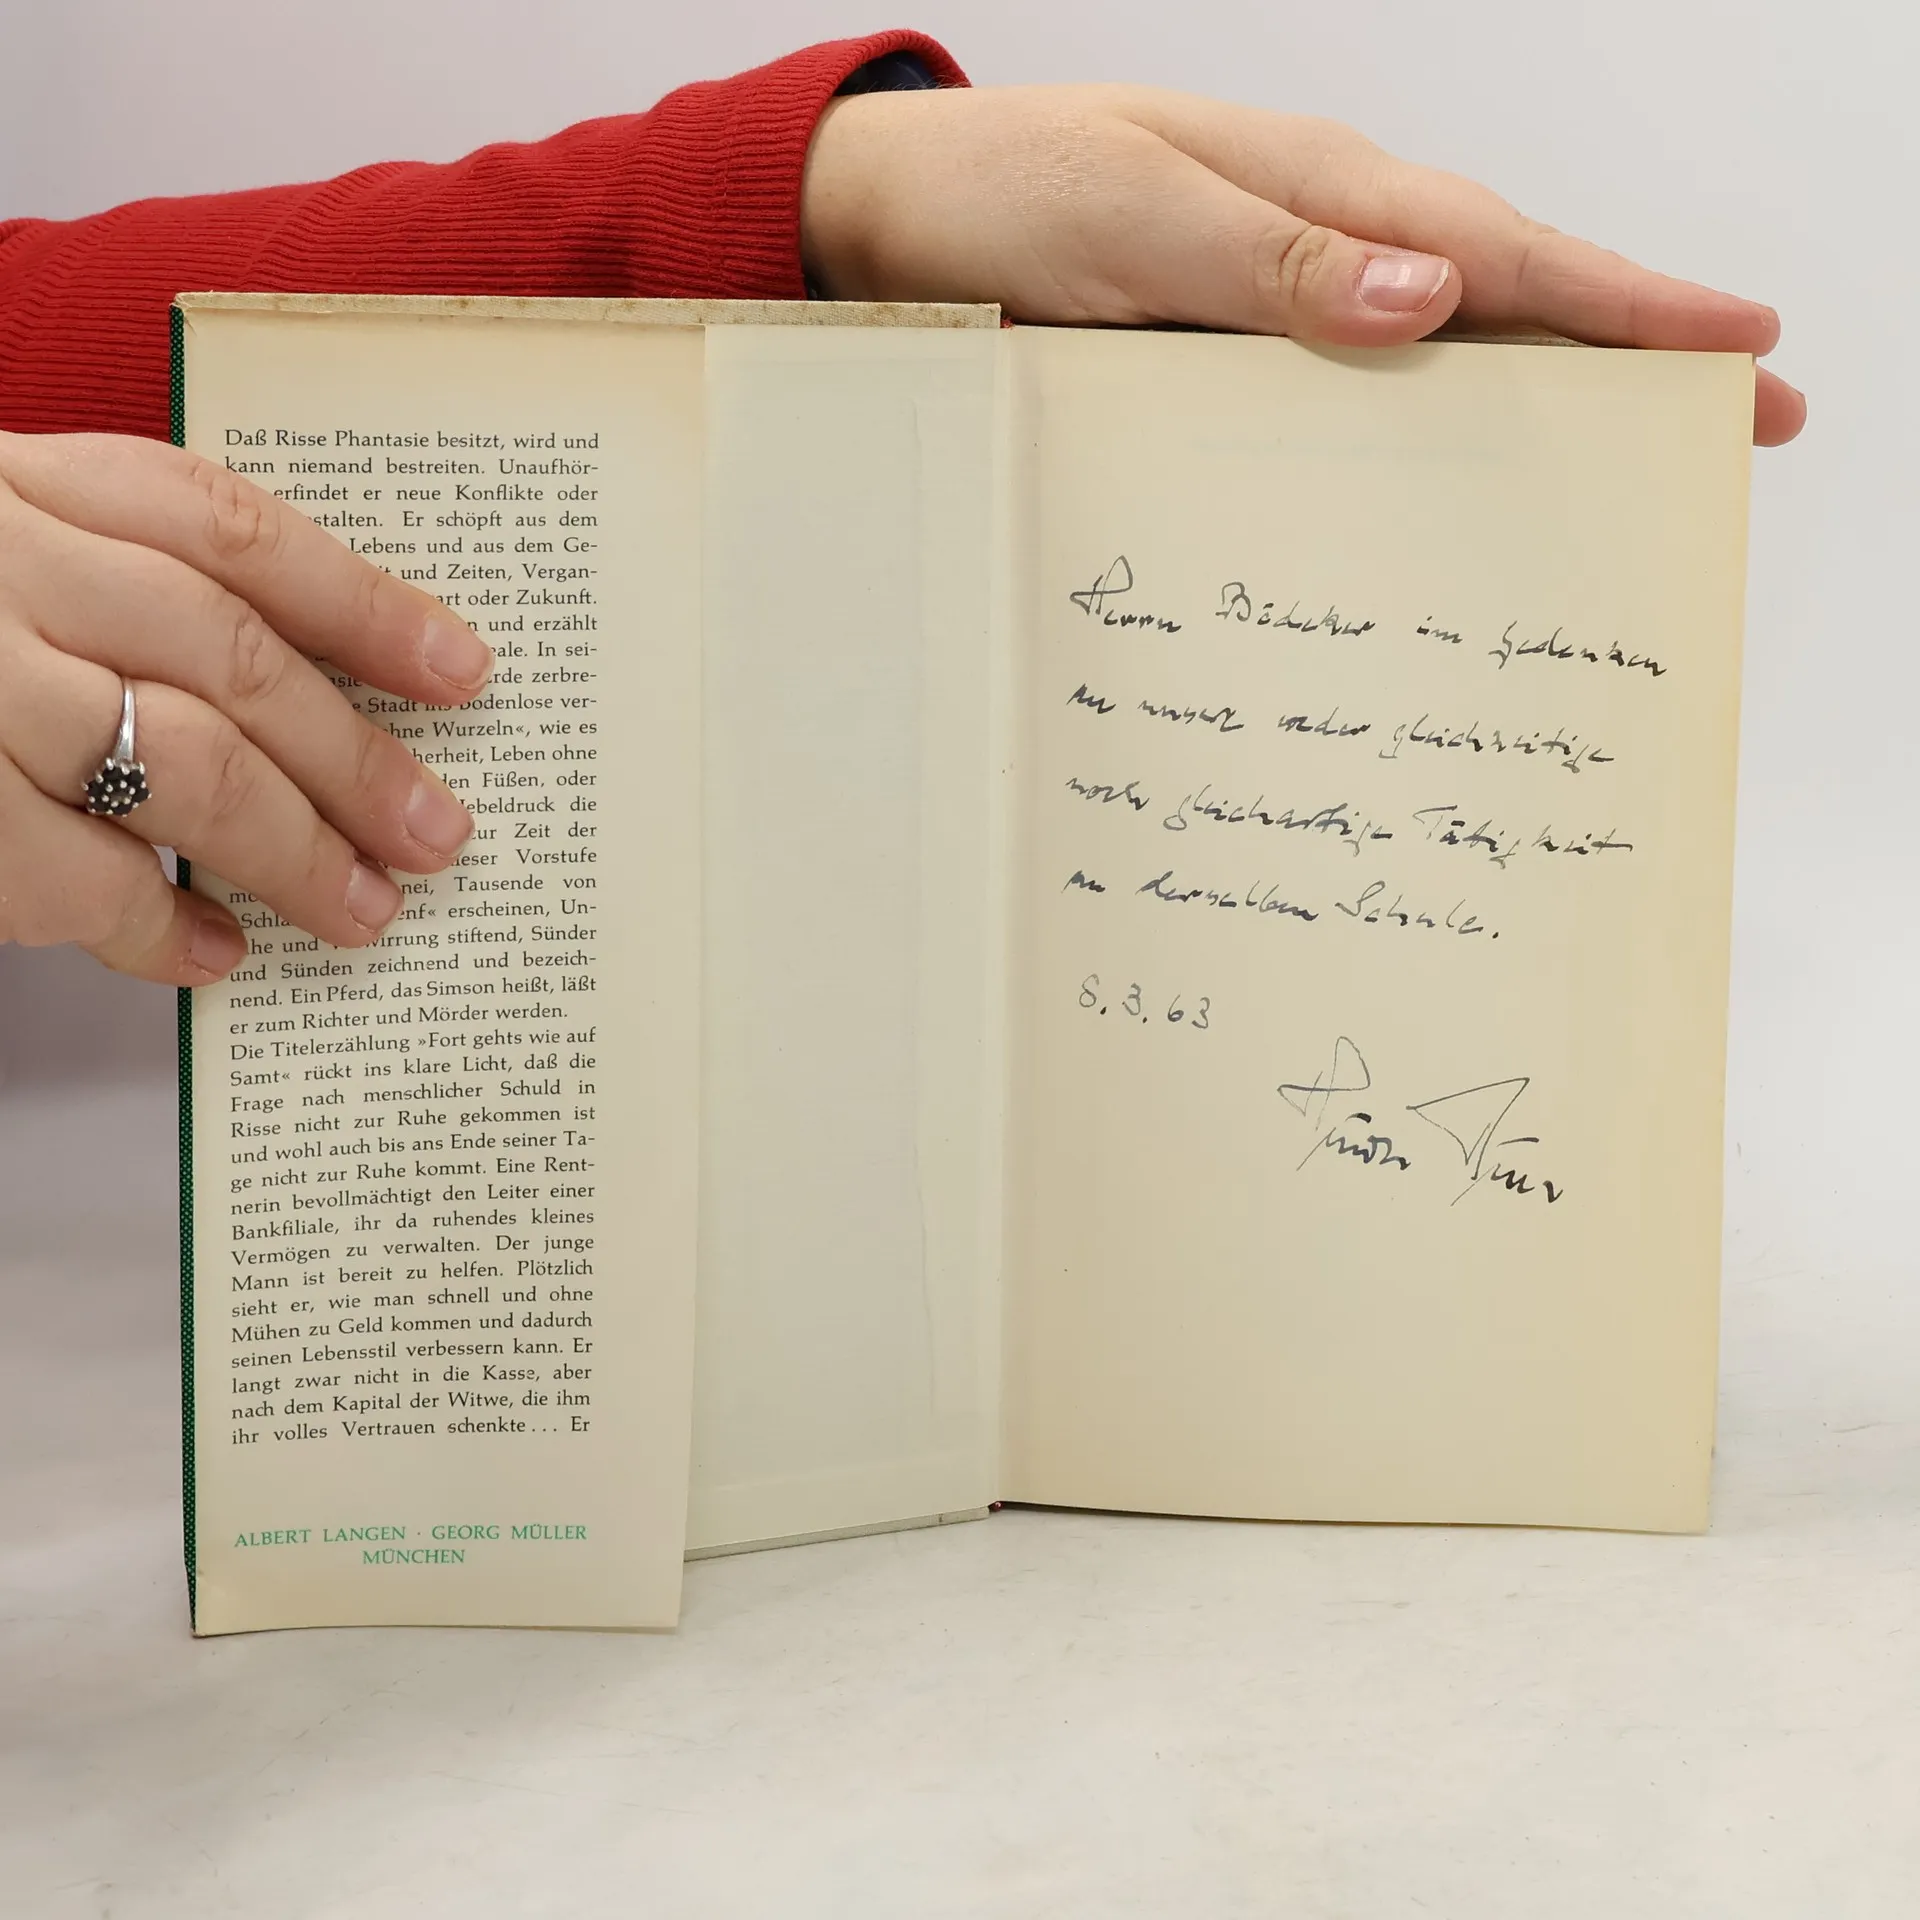 Daß Risse Phantasie besitzt, wird und
kann niemand bestreiten. Unaufhör-
erfindet er neue Konflikte oder
stalten. Er schöpft aus dem
Lebens und aus dem Ge-
und Zeiten, Vergan-
art oder Zukunft.
und erzählt
eale. In sei-
rde zerbre-
Stadt ins Bodenlose ver-
hne Wurzeln«, wie es
herheit, Leben ohne
den Füßen, oder
ebeldruck die
zur Zeit der
ieser Vorstufe
nei, Tausende von
enf« erscheinen, Un-
he und Verwirrung stiftend, Sünder
und Sünden zeichnend und bezeich-
nend. Ein Pferd, das Simson heißt, läßt
er zum Richter und Mörder werden.
Die Titelerzählung »Fort gehts wie auf
Samt« rückt ins klare Licht, daß die
Frage nach menschlicher Schuld in
Risse nicht zur Ruhe gekommen ist
und wohl auch bis ans Ende seiner Ta-
ge nicht zur Ruhe kommt. Eine Rent-
nerin bevollmächtigt den Leiter einer
Bankfiliale, ihr da ruhendes kleines
Vermögen zu verwalten. Der junge
Mann ist bereit zu helfen. Plötzlich
sieht er, wie man schnell und ohne
Mühen zu Geld kommen und dadurch
seinen Lebensstil verbessern kann. Er
langt zwar nicht in die Kasse, aber
nach dem Kapital der Witwe, die ihm
ihr volles Vertrauen schenkte... Er
ALBERT LANGEN · GEORG MÜLLER
MÜNCHEN
Herrn Bödeker im Gedenken
an unsere weder gleichzeitige
noch gleichartige Tätigkeit
an derselben Schule.
8.3.63